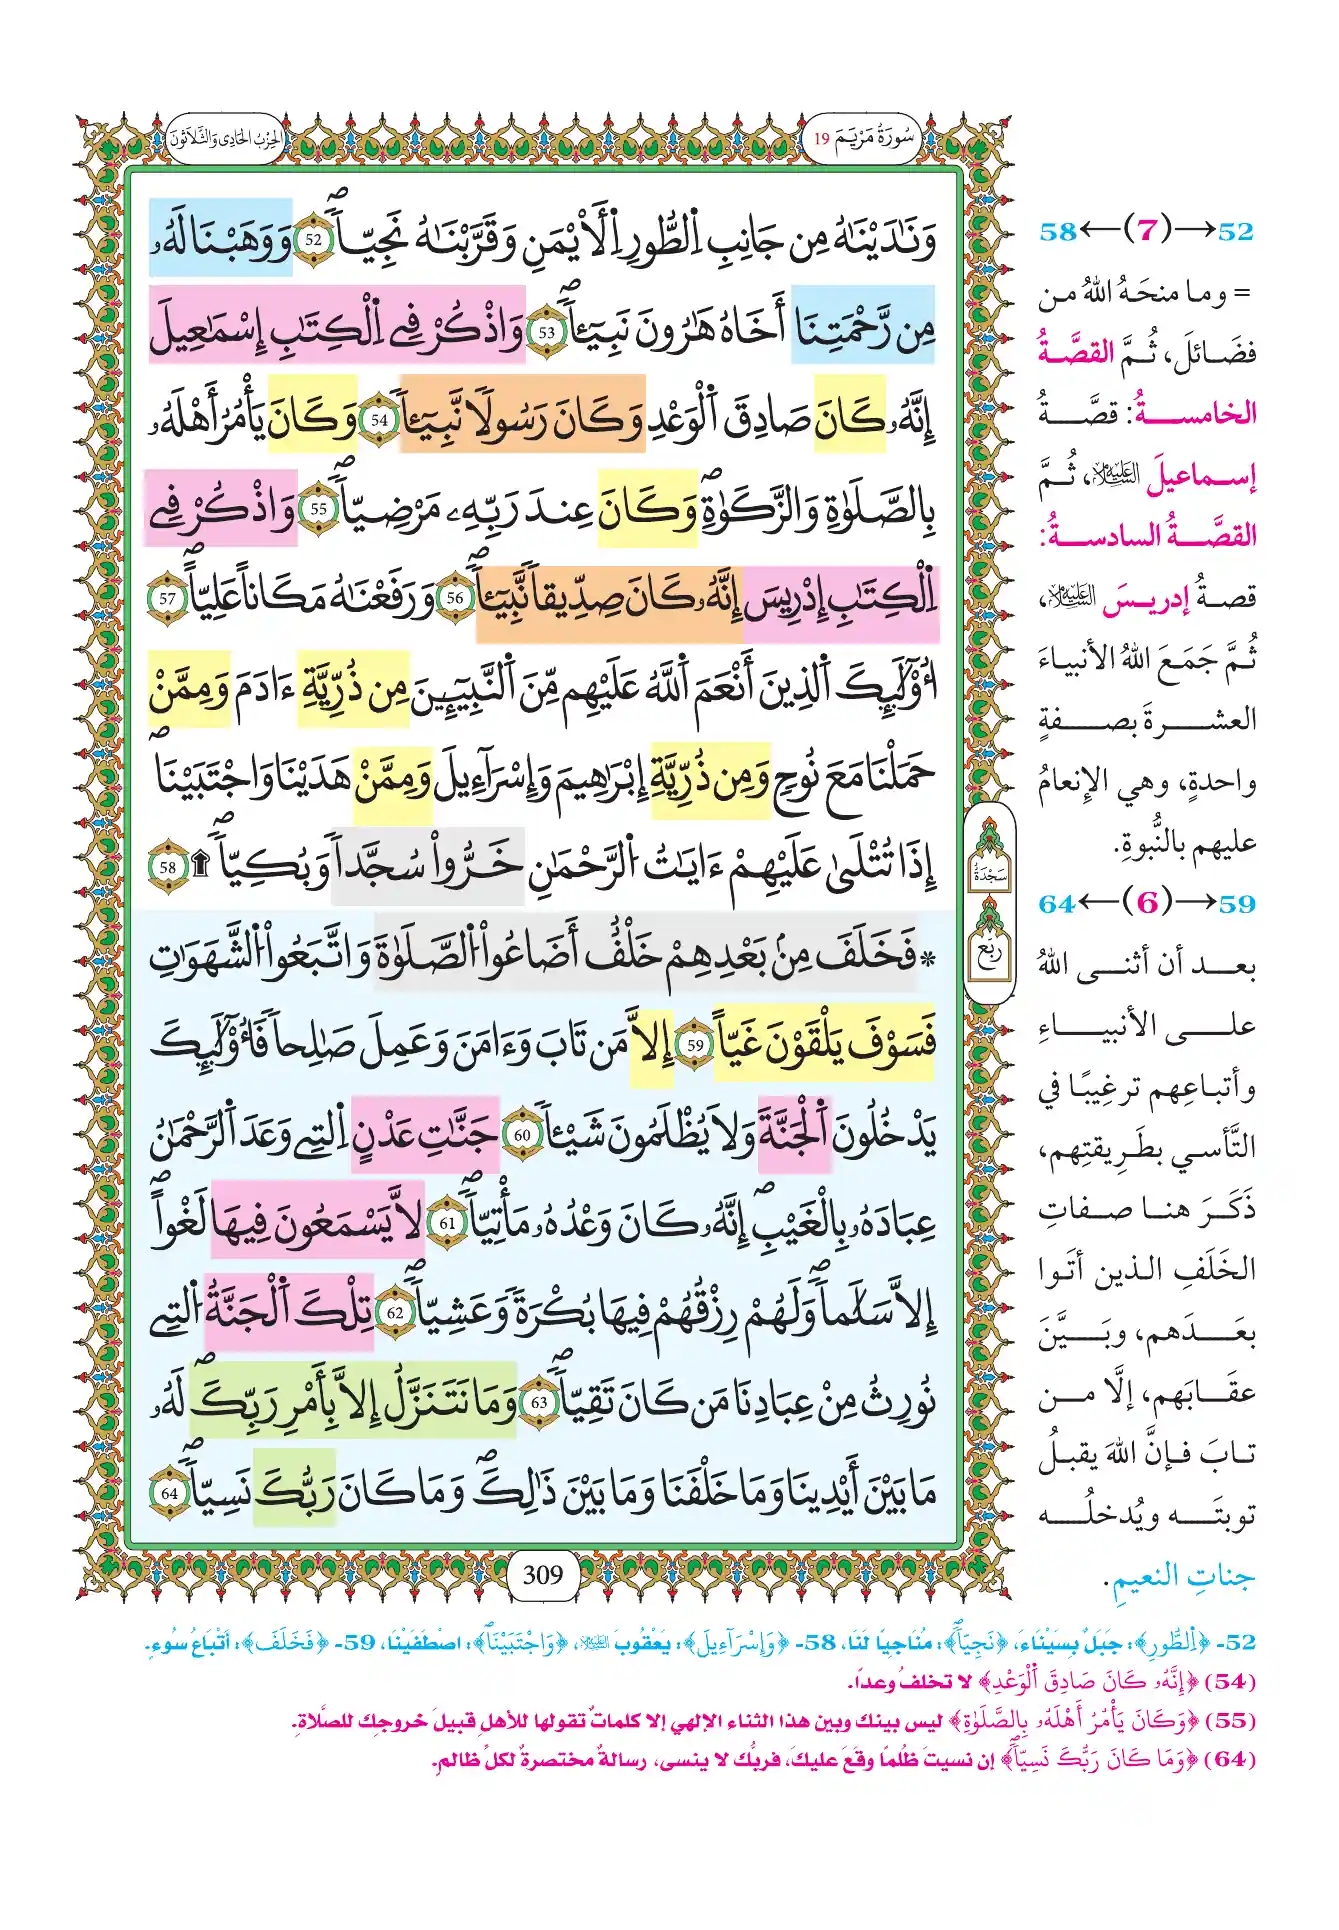 سُورَةُ مَرْيَمَ 19
الحِزْبُ الحَادِى وَالثَّلَاثُونَ
وَنَٰدَيْنَٰهُ مِن جَانِبِ اِ۬لطُّورِ اِ۬لَايْمَنِ وَقَرَّبْنَٰهُ نَجِيّاٗۖ 52 وَوَهَبْنَا لَهُۥ
مِن رَّحْمَتِنَا أَخَاهُ هَٰرُونَ نَبِيٓـٔاٗۖ 53 وَاذْكُرْ فِے اِ۬لْكِتَٰبِ إِسْمَٰعِيلَ
إِنَّهُۥ كَانَ صَادِقَ اَ۬لْوَعْدِ وَكَانَ رَسُولاٗ نَّبِيٓـٔاٗۖ 54 وَكَانَ يَأْمُرُ أَهْلَهُۥ
بِالصَّلَوٰةِ وَالزَّكَوٰةِۖ وَكَانَ عِندَ رَبِّهِۦ مَرْضِيّاٗۖ 55 وَاذْكُرْ فِے
اِ۬لْكِتَٰبِ إِدْرِيسَ إِنَّهُۥ كَانَ صِدِّيقاٗ نَّبِيٓـٔاٗۖ 56 وَرَفَعْنَٰهُ مَكَاناً عَلِيّاًۖ 57
ا۟وْلَٰٓئِكَ اَ۬لذِينَ أَنْعَمَ اَ۬للَّهُ عَلَيْهِم مِّنَ اَ۬لنَّبِيٓـِٕۧنَ مِن ذُرِّيَّةِ ءَادَمَ وَمِمَّنْ
حَمَلْنَا مَعَ نُوحٖ وَمِن ذُرِّيَّةِ إِبْرَٰهِيمَ وَإِسْرَآءِيلَ وَمِمَّنْ هَدَيْنَا وَاجْتَبَيْنَاۖ
إِذَا تُتْلَىٰ عَلَيْهِمْ ءَايَٰتُ اُ۬لرَّحْمَٰنِ خَرُّواْ سُجَّداٗ وَبُكِيّاٗۖ ۩ 58
* فَخَلَفَ مِنۢ بَعْدِهِمْ خَلْفٌ أَضَاعُواْ اُ۬لصَّلَوٰةَ وَاتَّبَعُواْ اُ۬لشَّهَوَٰتِ
فَسَوْفَ يَلْقَوْنَ غَيّاً 59 إِلَّا مَن تَابَ وَءَامَنَ وَعَمِلَ صَٰلِحاٗ فَأُوْلَٰٓئِكَ
يَدْخُلُونَ اَ۬لْجَنَّةَ وَلَا يُظْلَمُونَ شَيْـٔاٗۖ 60 جَنَّٰتِ عَدْنٍ اِ۬لتِے وَعَدَ اَ۬لرَّحْمَٰنُ
عِبَادَهُۥ بِالْغَيْبِۖ إِنَّهُۥ كَانَ وَعْدُهُۥ مَأْتِيّاٗۖ 61 لَّا يَسْمَعُونَ فِيهَا لَغْواًۖ
إِلَّا سَلَٰماٗۖ وَلَهُمْ رِزْقُهُمْ فِيهَا بُكْرَةٗ وَعَشِيّاٗۖ 62 تِلْكَ اَ۬لْجَنَّةُ اُ۬لتِے
نُورِثُ مِنْ عِبَادِنَا مَن كَانَ تَقِيّاٗۖ 63 وَمَا نَتَنَزَّلُ إِلَّا بِأَمْرِ رَبِّكَۖ لَهُۥ
مَا بَيْنَ أَيْدِينَا وَمَا خَلْفَنَا وَمَا بَيْنَ ذَٰلِكَۖ وَمَا كَانَ رَبُّكَ نَسِيّاٗۖ 64
سَجْدَةٌ
رُبُع
309
52→(7)←58
= وما منحَهُ اللهُ من
فضائلَ، ثُمَّ القصَّةُ
الخامسةُ: قصَّةُ
إسماعيلَ عليه السلام، ثُمَّ
القصَّةُ السادسةُ:
قصةُ إدريسَ عليه السلام،
ثُمَّ جَمَعَ اللهُ الأنبياءَ
العشرةَ بصفةٍ
واحدةٍ، وهي الإنعامُ
عليهم بالنُّبوةِ.
59→(6)←64
بعد أن أثنى اللهُ
على الأنبياءِ
وأتباعِهم ترغيبًا في
التَّأسي بطَرِيقتِهم،
ذَكَرَ هنا صفاتِ
الخَلَفِ الذين أتَوا
بعدَهم، وبَيَّنَ
عقَابَهم، إلَّا من
تابَ فإنَّ اللهَ يقبلُ
توبتَه ويُدخلُه
جناتِ النعيمِ.
52- ﴿اِ۬لطُّورِ﴾: جَبَلٌ بِسَيْنَاءَ، ﴿نَجِيّاٗۖ﴾: مُنَاجِيًا لَنَا، 58- ﴿وَإِسْرَآءِيلَ﴾: يَعْقُوبَ عليه السلام، ﴿وَاجْتَبَيْنَاۖ﴾: اصْطَفَيْنَا، 59- ﴿فَخَلَفَ﴾: أَتْبَاعُ سُوءٍ.
(54) ﴿إِنَّهُۥ كَانَ صَادِقَ اَ۬لْوَعْدِ﴾ لا تخلفُ وعدًا.
(55) ﴿وَكَانَ يَأْمُرُ أَهْلَهُۥ بِالصَّلَوٰةِ﴾ ليس بينك وبين هذا الثناء الإلهي إلا كلماتٌ تقولها للأهلِ قبيلَ خروجِك للصَّلاةِ.
(64) ﴿وَمَا كَانَ رَبُّكَ نَسِيّاٗۖ﴾ إن نسيتَ ظُلمًا وقَعَ عليكَ، فربُّك لا ينسى، رسالةٌ مختصرةٌ لكلِّ ظالمٍ.